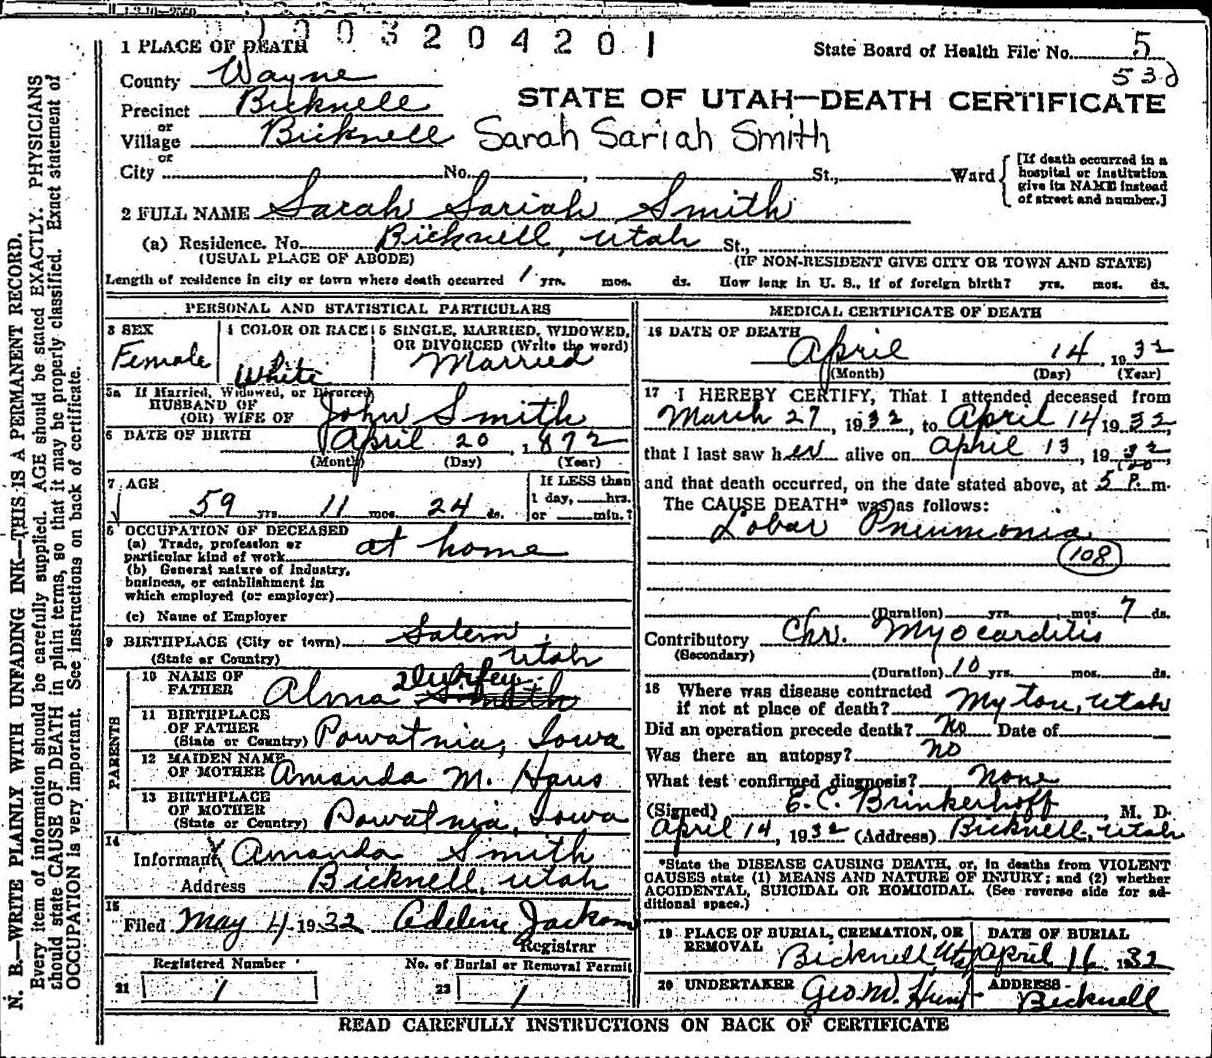 1003204201
1 PLACE OF DEATH
State Board of Health File No. 5
530
County Wayne
STATE OF UTAH—DEATH CERTIFICATE
Precinct Bicknell
or
Village Bicknell
Sarah Sariah Smith
or
City No. , St., Ward
[If death occurred in a
hospital or institution
give its NAME instead
of street and number.]
2 FULL NAME Sarah Sariah Smith
(a) Residence. No. Bicknell, Utah St.,
(USUAL PLACE OF ABODE) (IF NON-RESIDENT GIVE CITY OR TOWN AND STATE)
Length of residence in city or town where death occurred 1 yrs. mos. ds. How long in U. S., if of foreign birth? yrs. mos. ds.
PERSONAL AND STATISTICAL PARTICULARS
3 SEX
Female
4 COLOR OR RACE
White
5 SINGLE, MARRIED, WIDOWED,
OR DIVORCED (Write the word)
Married
5a If Married, Widowed, or Divorced
HUSBAND OF
(OR) WIFE OF John Smith
6 DATE OF BIRTH April 20, 1872
(Month) (Day) (Year)
7 AGE
59 yrs. 11 mos. 24 ds.
If LESS than
1 day, hrs.
or min.?
8 OCCUPATION OF DECEASED
(a) Trade, profession or
particular kind of work at home
(b) General nature of Industry,
business, or establishment in
which employed (or employer)
(c) Name of Employer
9 BIRTHPLACE (City or town) Salem,
(State or Country) Utah
PARENTS
10 NAME OF
FATHER Alma Durfey Smith
11 BIRTHPLACE
OF FATHER
(State or Country) Powatnia, Iowa
12 MAIDEN NAME
OF MOTHER Amanda M. Haws
13 BIRTHPLACE
OF MOTHER
(State or Country) Powatnia, Iowa
14
Informant X Amanda Smith
Address Bicknell, Utah
15
Filed May 4 1932 Adeline Jackson
Registrar
Registered Number
21 1
No. of Burial or Removal Permit
22 1
MEDICAL CERTIFICATE OF DEATH
16 DATE OF DEATH
April 14, 1932
(Month) (Day) (Year)
17 I HEREBY CERTIFY, That I attended deceased from
March 27, 1932, to April 14 1932,
that I last saw her alive on April 13, 1932
and that death occurred, on the date stated above, at 5 P. m.
The CAUSE DEATH* was as follows:
Lobar Pneumonia
108
(Duration) yrs. mos. 7 ds.
Contributory Chr. Myocarditis
(Secondary)
(Duration) 10 yrs. mos. ds.
18 Where was disease contracted
if not at place of death? Myton, Utah
Did an operation precede death? No Date of
Was there an autopsy? no
What test confirmed diagnosis? None
(Signed) E. C. Brinkerhoff, M. D.
April 14, 1932 (Address) Bicknell, Utah
*State the DISEASE CAUSING DEATH, or, in deaths from VIOLENT
CAUSES state (1) MEANS AND NATURE OF INJURY; and (2) whether
ACCIDENTAL, SUICIDAL OR HOMICIDAL. (See reverse side for ad-
ditional space.)
19 PLACE OF BURIAL, CREMATION, OR
REMOVAL
Bicknell, Utah
DATE OF BURIAL
April 16 1932
20 UNDERTAKER Geo. M. Hunt
ADDRESS
Bicknell
READ CAREFULLY INSTRUCTIONS ON BACK OF CERTIFICATE
N. B.—WRITE PLAINLY WITH UNFADING INK—THIS IS A PERMANENT RECORD.
Every item of information should be carefully supplied. AGE should be stated EXACTLY. PHYSICIANS
should state CAUSE OF DEATH in plain terms, so that it may be properly classified. Exact statement of
OCCUPATION is very important. See instructions on back of certificate.